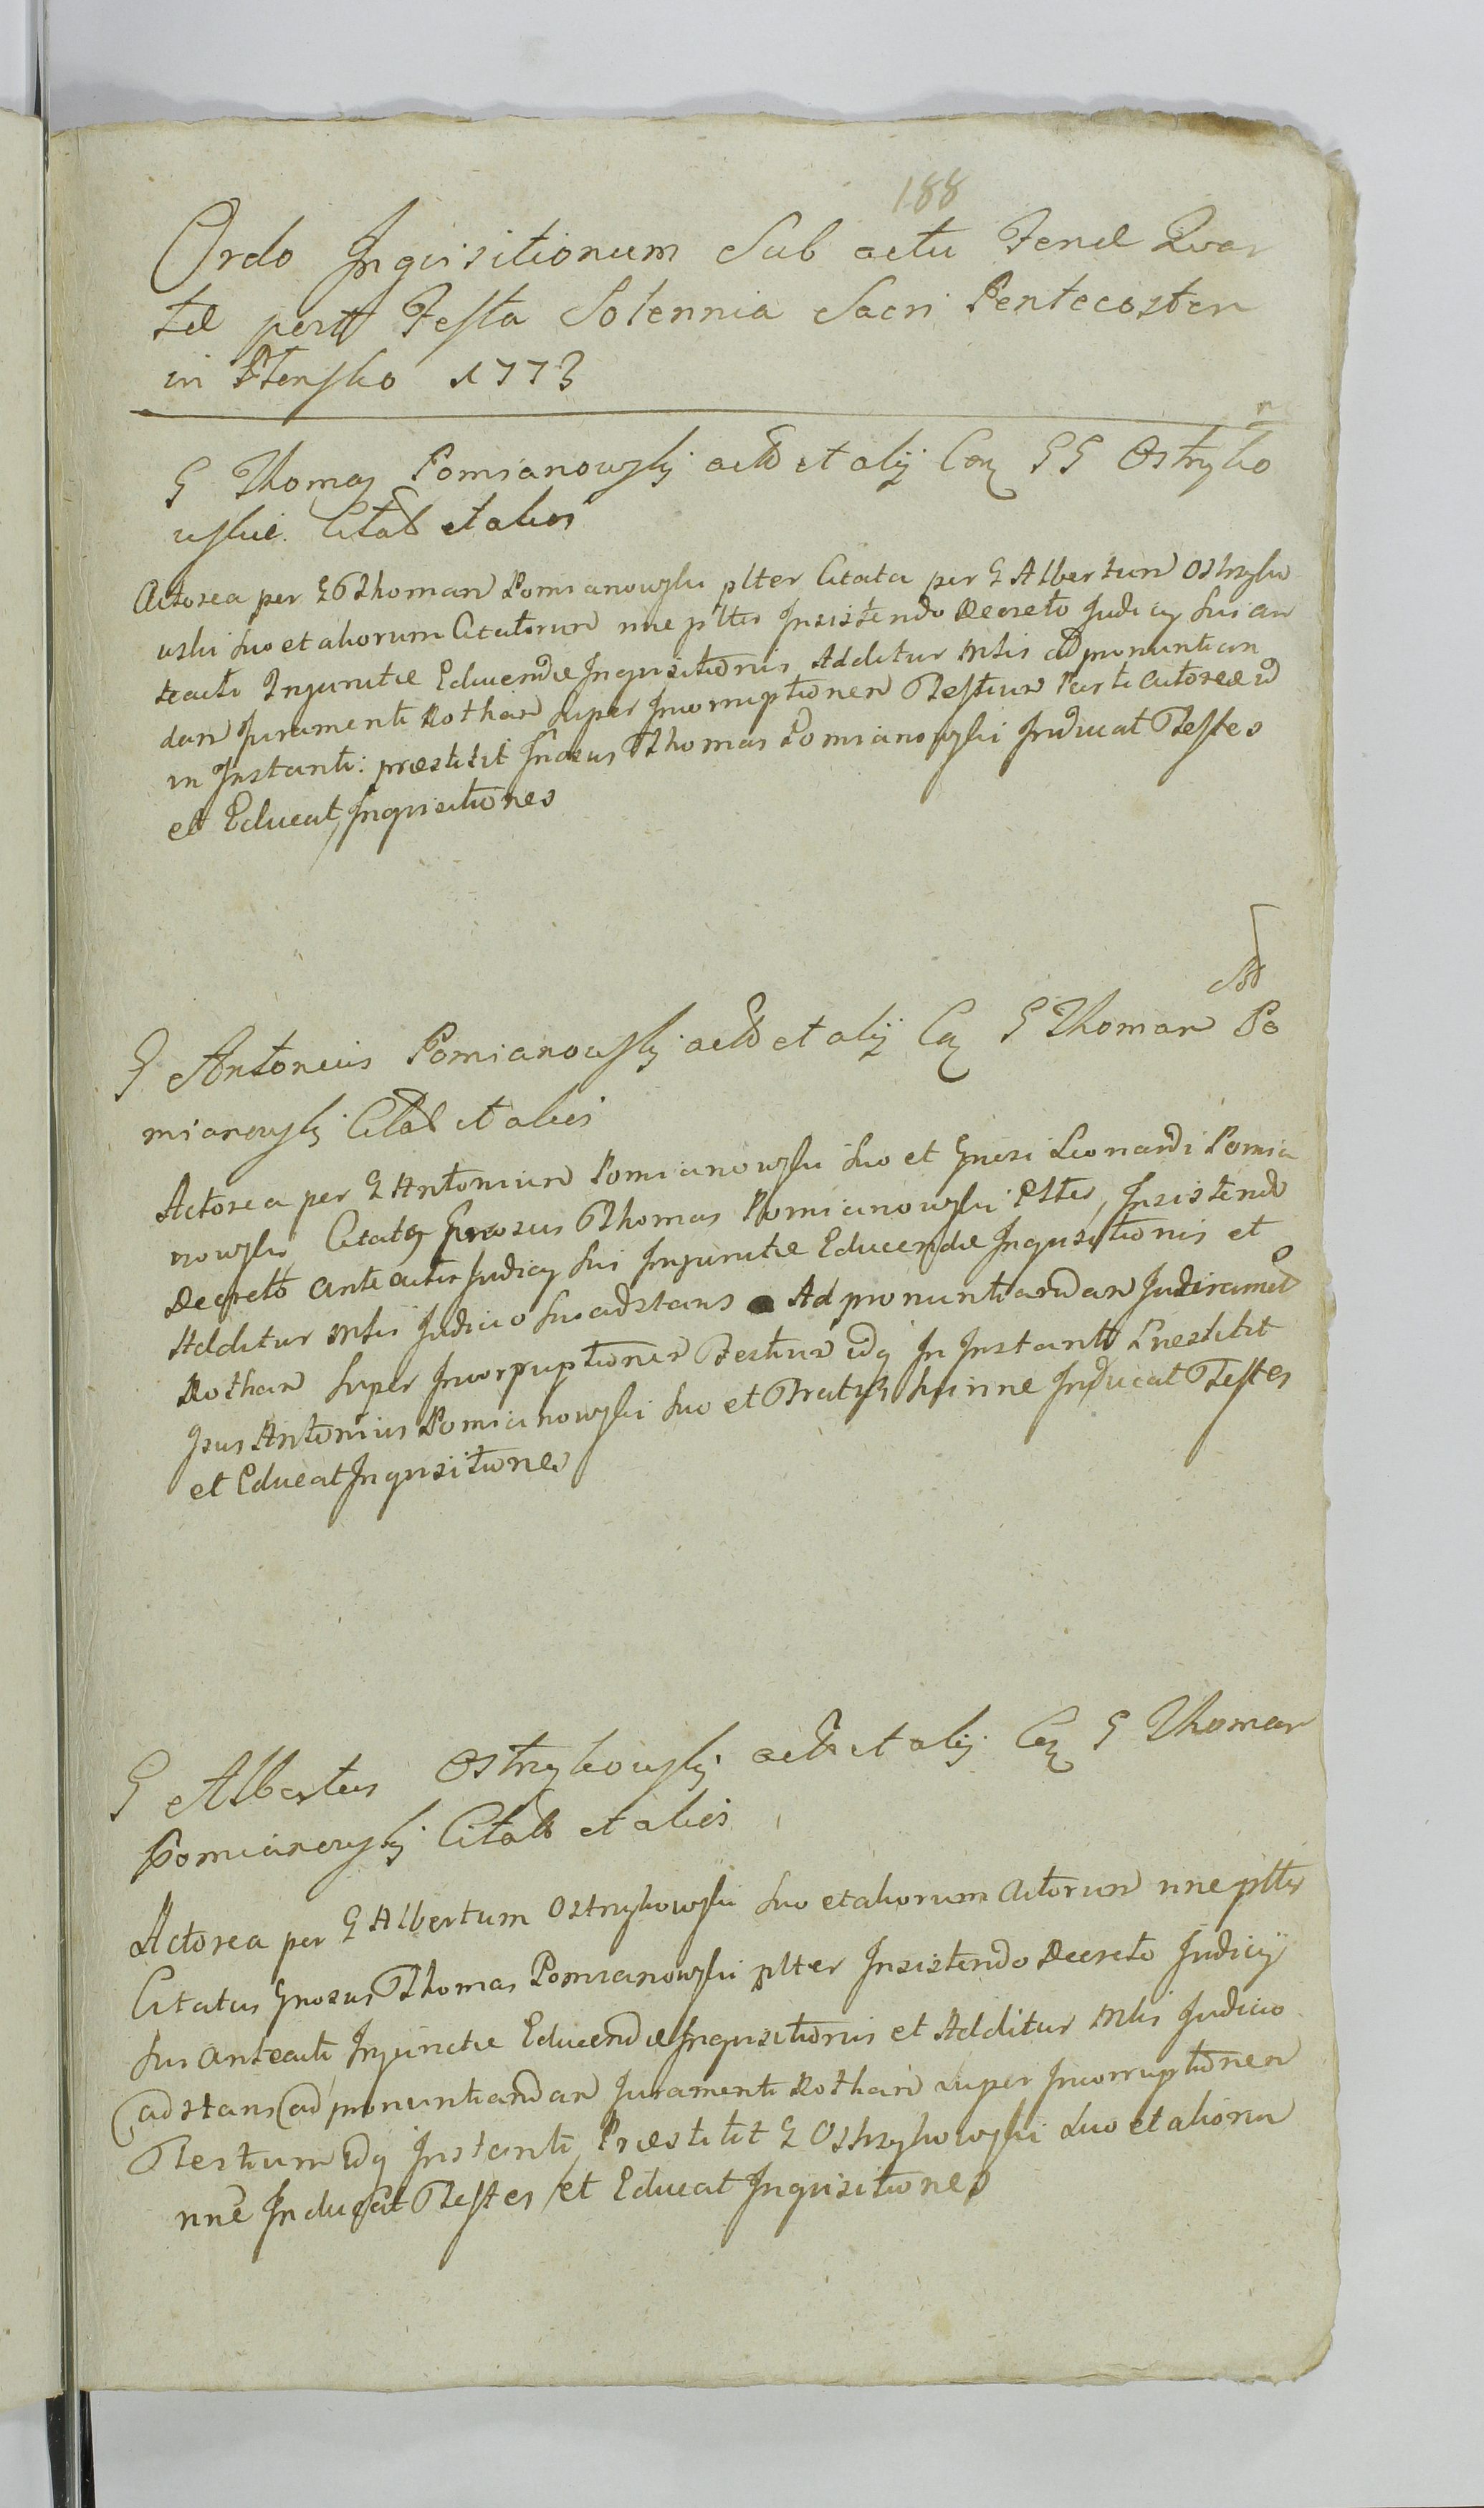 188
Ordo Inqisitionum Sub actu Feriæ Quar
tæ post Festa Solennia Sacri Pentecosten
in Płońsko 1773
G Thomas Pomianowskj act et alij Con GG Ostryko
uskie. Citat et alios
Actorea per G Thoman Pomianowski plter Citata per G Albertum Ostryko
uski suo et aliorum Citatorum nne pltes Insistendo Decreto Judicij sui an
teacti Injunctæ Educendæ Inquisitionis Additur mlis ad pronuntian
dan Juramenti Rothan super Incorruptionen Testium Parti actoreæ id
in Instanti: præstitit Gnosus Thomas Pomianowski Inducat Testes
et Educat Inquisitiones
G Antonius Pomianouskj act et alij Con G Thoman Po
mianouskj Citat et alios
Actorea per G Antonium Pomianowski suo et Gnosi Leonardi Pomia
nowski Citatq Gnosus Thomas Pomianowski Plter, Insistendo
Decreto anteacto Judicij sui Injunctæ Educendæ Inqusitionis et
Additur mlis Judicio suo adstans Ad pronuntiandan Judirament
Rothan super Incorruptionen Testium idq In Instanti Præstitit
Gsus Antonius Pomianowski suo et Fratris sui nne Inducat Testes
et Educat Inqusitiones
G Albertus Ostrykouskj act et alij Con G Thoman
Pomianouskj Citat et alios
Actorea per G Albertum Ostrykowski suo et aliorum actorum nne pltes
Citatus Gnosus Thomas Pomianowski plter Insistendo Decreto Judicij
sui anteacti Injunctæ Educendæ Inqusitionis et Additur mlis Judicio
adstans ad pronuntiandan Juramenti Rothan super Incorruptionen
Testium idq Instanti Præstitit G Ostrykowski suo et aliorum
nne Inducat Testes et Educat Inquisitiones